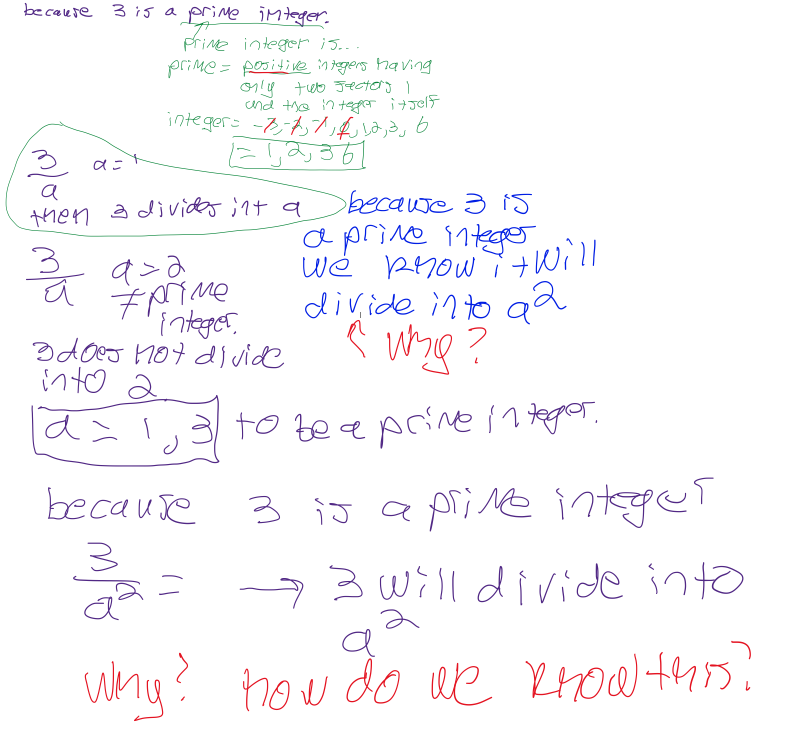 because 3 is a prime integer.
prime integer is...
prime = positive integers having
only two factors 1
and the integer itself
integer = -3, -2, -1, 0, 1, 2, 3, 6
= 1, 2, 3 6
3/a a = 1
then 3 divides int a
because 3 is
a prime integer
we know it will
divide into a²
why?
3/a a = 2
≠ prime
integer.
3 does not divide
into 2
a = 1, 3 to be a prime integer.
because 3 is a prime integer
3/a² = → 3 will divide into
a²
why? how do we know this?